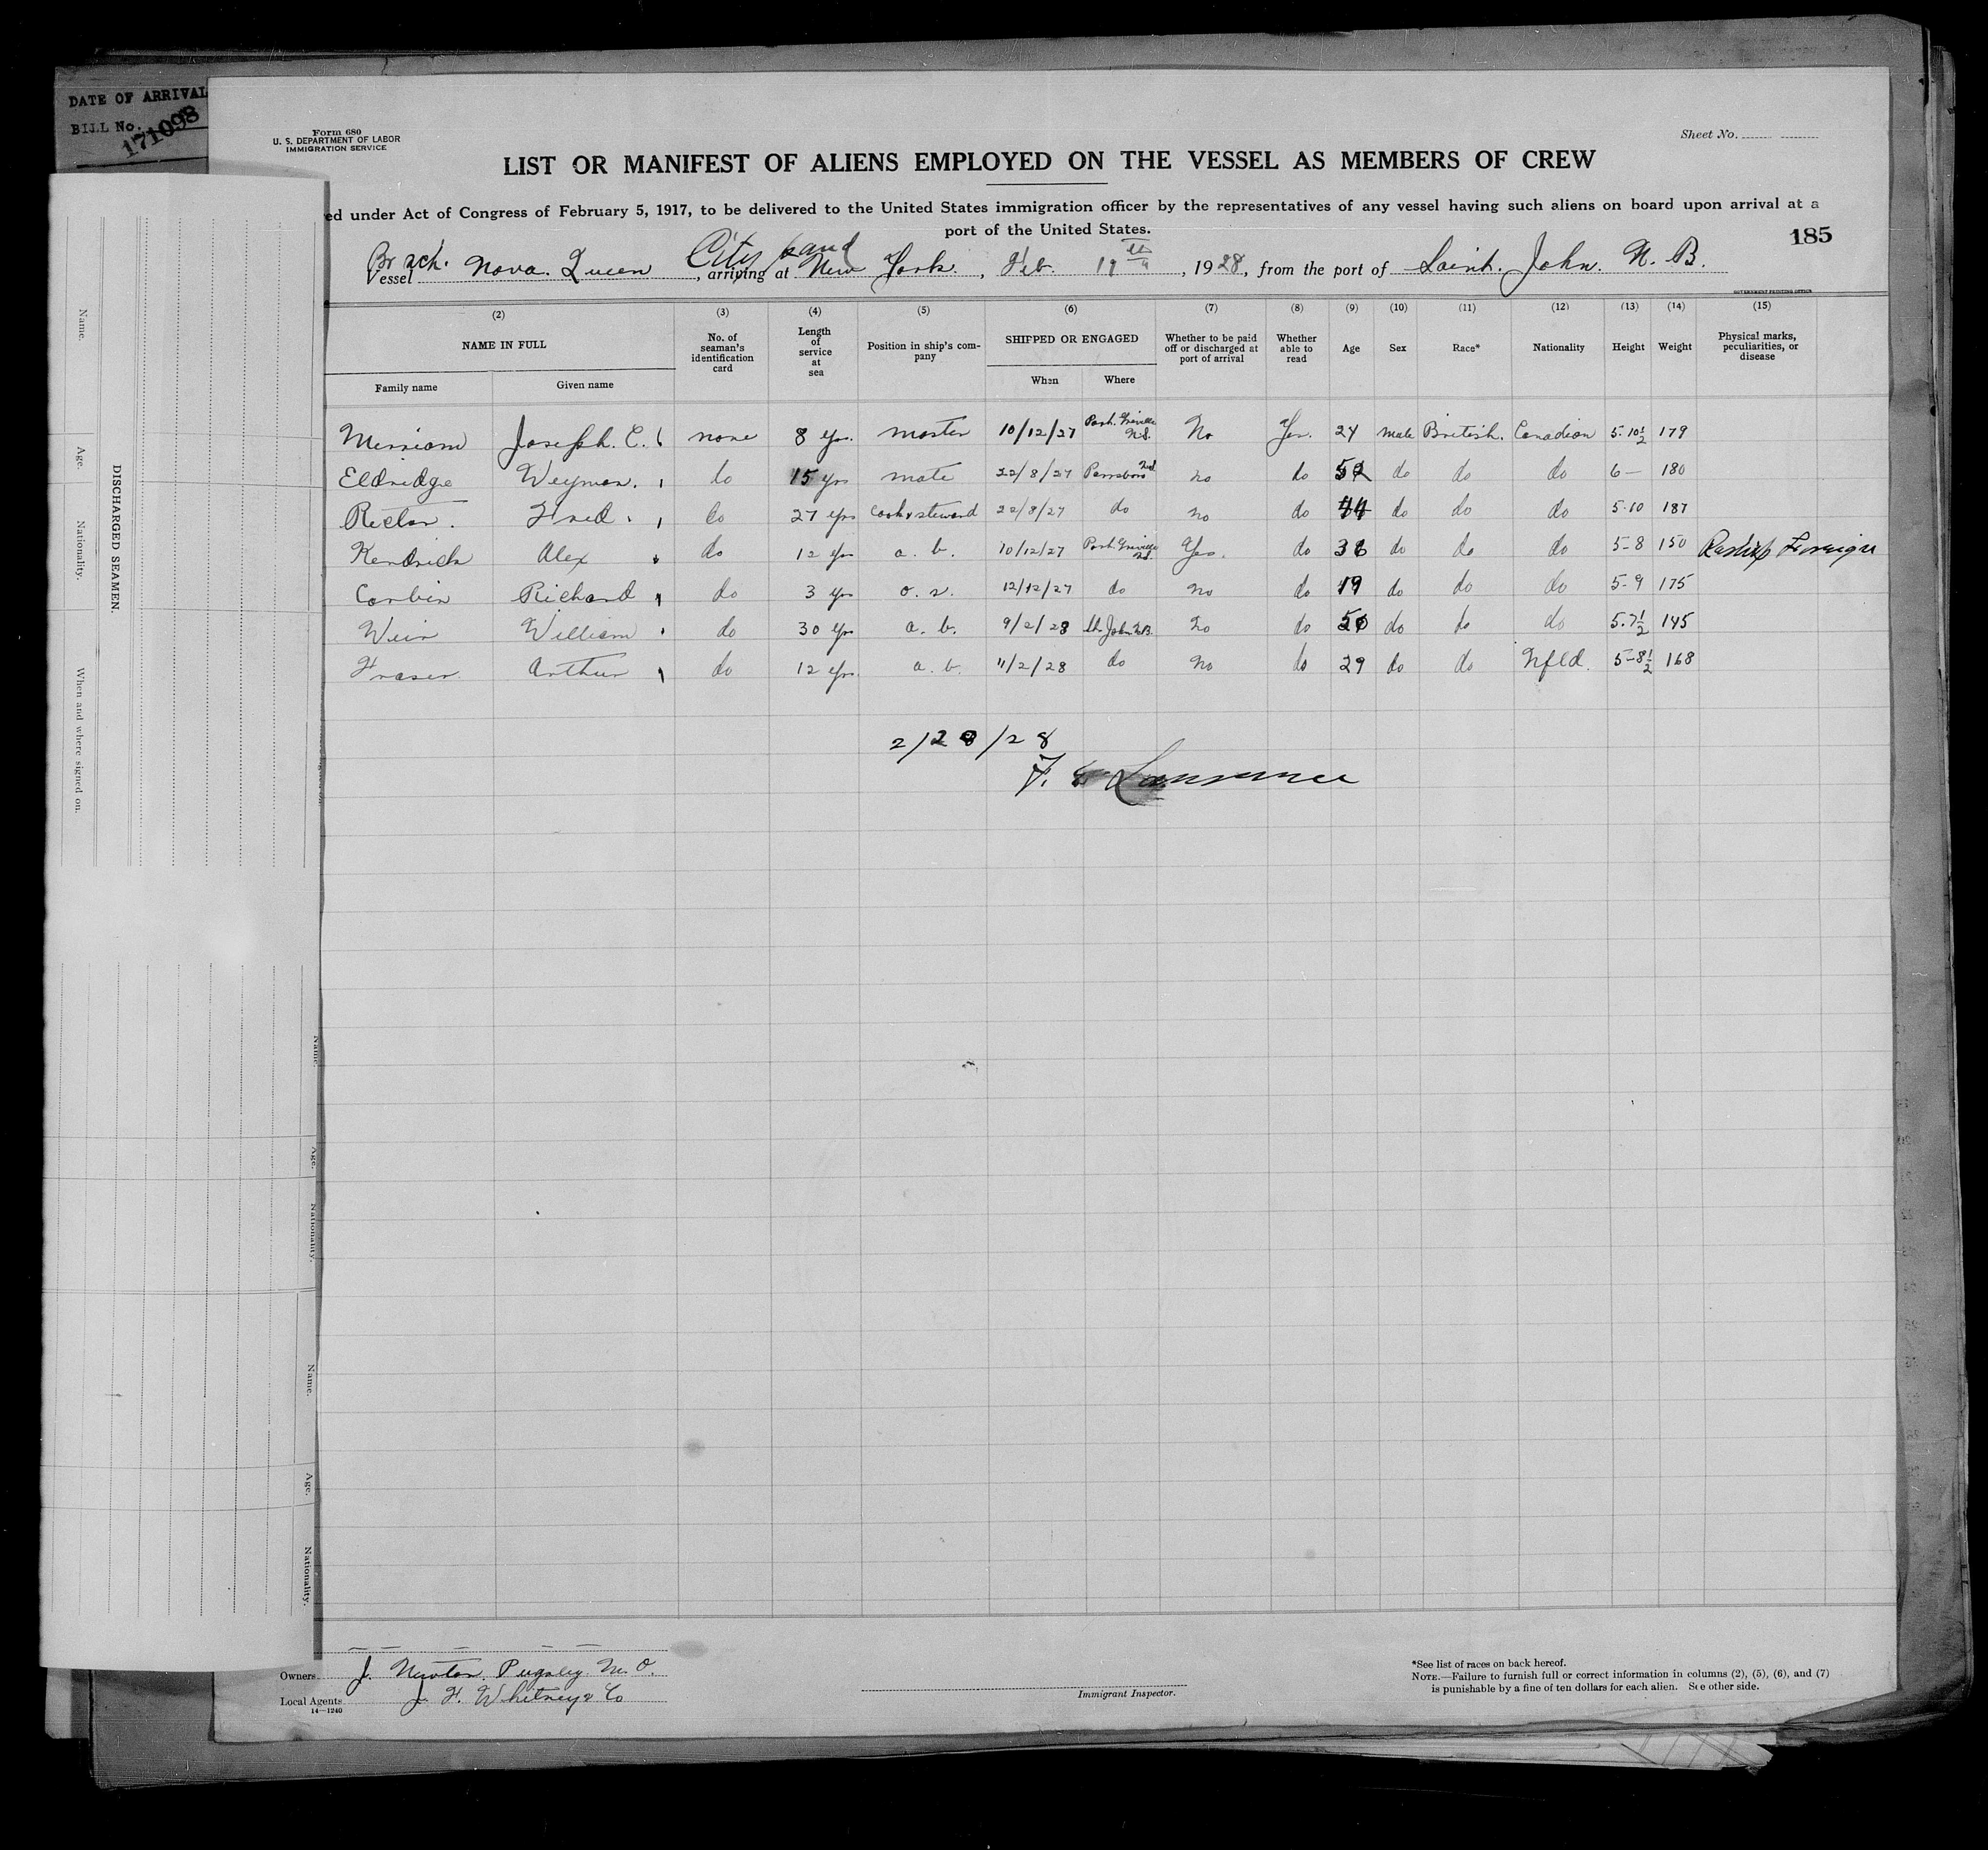 DATE OF ARRIVAL
BILL No. 171098
Form 680
U. S. DEPARTMENT OF LABOR
IMMIGRATION SERVICE
Sheet No.
LIST OR MANIFEST OF ALIENS EMPLOYED ON THE VESSEL AS MEMBERS OF CREW
ed under Act of Congress of February 5, 1917, to be delivered to the United States immigration officer by the representatives of any vessel having such aliens on board upon arrival at a
port of the United States.
185
Br sch. City
Vessel Nova Queen, arriving at New York, Feb. 19th, 1928, from the port of Saint. John. N. B.
GOVERNMENT PRINTING OFFICE
(2) (3) (4) (5) (6) (7) (8) (9) (10) (11) (12) (13) (14) (15)
NAME IN FULL No. of seaman's identification card Length of service at sea Position in ship's company SHIPPED OR ENGAGED Whether to be paid off or discharged at port of arrival Whether able to read Age Sex Race* Nationality Height Weight Physical marks, peculiarities, or disease
Family name Given name When Where
Merriam Joseph. E. none 8 yrs. master 10/12/27 Port Greville N.S. No Yes. 24 male British. Canadian 5-10½ 179
Eldridge Weyman. do 15 yrs mate 22/8/27 Parrsboro N.S. no do 52 do do do 6 — 180
Rector. Fred. do 27 yrs cook & steward 22/8/27 do no do 44 do do do 5-10 187
Kendrick Alex do 12 yrs a. b. 10/12/27 Port Greville N.S. Yes. do 36 do do do 5-8 150 Foreign
Corbin Richard do 3 yrs o. s. 12/12/27 do no do 19 do do do 5-9 175
Weir William do 30 yrs a. b. 9/2/28 St. John N.B. No do 50 do do do 5.7½ 145
Fraser Arthur do 12 yrs. a. b. 11/2/28 do No do 29 do do Nfld. 5-8½ 168
2/28/28
F. Lawrence
DISCHARGED SEAMEN.
Name. Age. Nationality. When and where signed on.
Name. Age. Nationality.
Name. Age. Nationality.
Owners J. Newton. Pugsley. M. O.
Local Agents J. F. Whitney & Co
14—1240
Immigrant Inspector.
*See list of races on back hereof.
NOTE.—Failure to furnish full or correct information in columns (2), (5), (6), and (7)
is punishable by a fine of ten dollars for each alien. See other side.